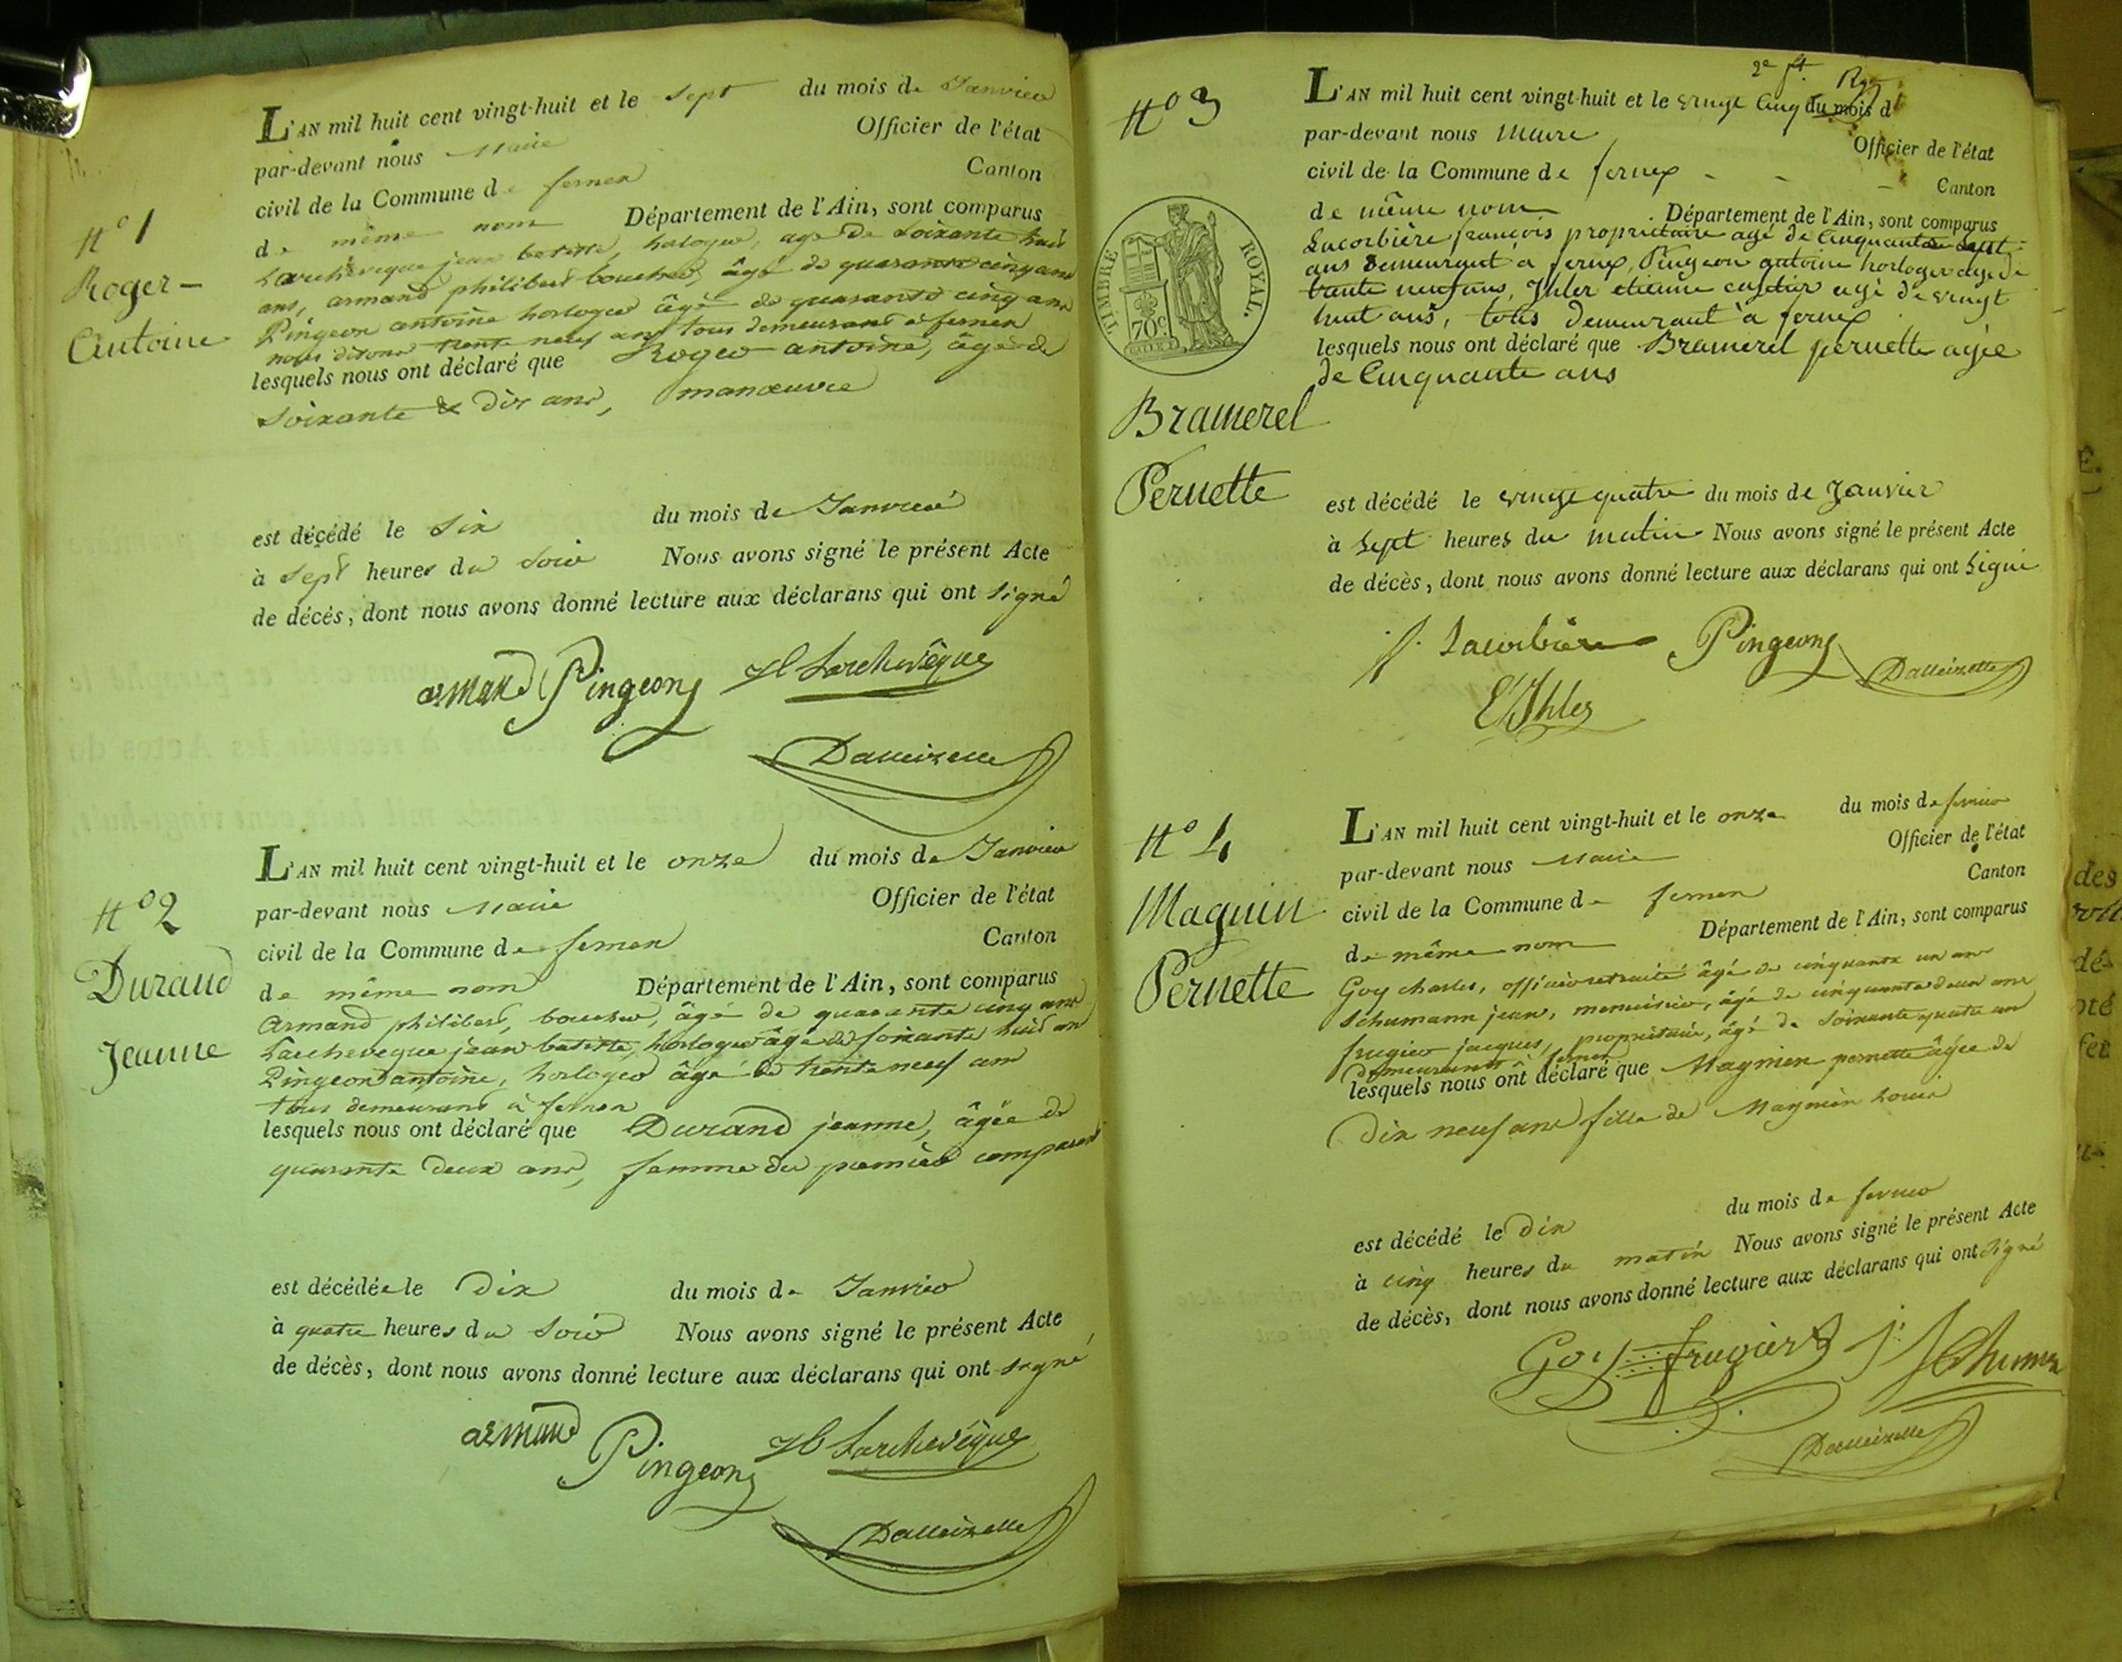 N° 1
Roger-
Antoine
L'AN mil huit cent vingt-huit et le sept du mois de Janvier
par-devant nous Maire Officier de l'état
civil de la Commune de fernex Canton
de même nom Département de l'Ain, sont comparus
Larcheveque jean batiste, horloger, age de soixante huit
ans, armand philibert boucher, âgé de quarante cinq ans
Pingeon antoine horloger âgé de quarante cinq ans
nous disons trente neuf ans tous demeurans à fernex
lesquels nous ont déclaré que Roger antoine, âgé de
soixante & dix ans, manœuvre
est décédé le six du mois de Janvier
à sept heures du soir Nous avons signé le présent Acte
de décès, dont nous avons donné lecture aux déclarans qui ont signé
armand Pingeon Larchevêque
Dalleizette
N° 2
Durand
Jeanne
L'AN mil huit cent vingt-huit et le onze du mois de Janvier
par-devant nous Maire Officier de l'état
civil de la Commune de fernex Canton
de même nom Département de l'Ain, sont comparus
Armand philibert, boucher, âgé de quarante cinq ans
Larcheveque jean batiste, horloger âgé de soixante huit an
Pingeon antoine, horloger âgé de trente neuf ans
tous demeurans à fernex
lesquels nous ont déclaré que Durand jeanne, âgée de
quarante deux ans, femme du premier comparant
est décédée le dix du mois de Janvier
à quatre heures du soir Nous avons signé le présent Acte
de décès, dont nous avons donné lecture aux déclarans qui ont signé
armand Pingeon Larchevêque
Dalleizette
2e ft.
N° 3
TIMBRE ROYAL.
70c
Bramerel
Pernette
L'AN mil huit cent vingt-huit et le vingt cinq du mois d
par-devant nous Maire Officier de l'état
civil de la Commune de fernex - - - Canton
de même nom Département de l'Ain, sont comparus
Lacorbière françois proprietaire agé de cinquante sept
ans demeurant à fernex, Pingeon antoine horloger age de
trente neuf ans, Ihler etienne cafetier agé de vingt
huit ans, tous demeurant à fernex
lesquels nous ont déclaré que Bramerel pernette agée
de cinquante ans
est décédé le vingt quatre du mois de Janvier
à sept heures du matin Nous avons signé le présent Acte
de décès, dont nous avons donné lecture aux déclarans qui ont signé
f. Lacorbière Pingeon
Dalleizette
E Ihler
N° 4
Magnin
Pernette
L'AN mil huit cent vingt-huit et le onze du mois de fevrier
par-devant nous Maire Officier de l'état
civil de la Commune de fernex Canton
de même nom Département de l'Ain, sont comparus
Goy charles, officier retraité âgé de cinquante un ans
Schumann jean, menuisier, âgé de cinquante deux ans
frugier jacques, propriétaire, âgé de soixante quatre ans
demeurants à fernex
lesquels nous ont déclaré que Magnien pernette âgée de
dix neuf ans fille de Magnien Louis
est décédé le dix du mois de fevrier
à cinq heures du matin Nous avons signé le présent Acte
de décès, dont nous avons donné lecture aux déclarans qui ont signé
Goy frugier J. Schuman
Dalleizette